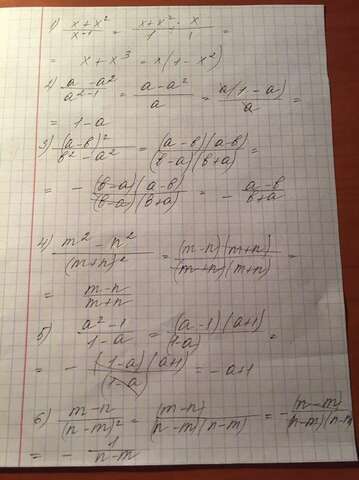 1) (x + x²)/(x⁻¹) = (x + x²)/1 · x/1 =
= x + x³ = x(1 - x²)
2) (a - a²)/(a²⁻¹) = (a - a²)/a = a(1 - a)/a =
= 1 - a
3) (a - b)²/(b² - a²) = (a - b)(a - b)/(b - a)(b + a) =
= - (b - a)(a - b)/(b - a)(b + a) = - (a - b)/(b + a)
4) (m² - n²)/(m + n)² = (m - n)(m + n)/(m + n)(m + n) =
= (m - n)/(m + n)
5) (a² - 1)/(1 - a) = (a - 1)(a + 1)/(1 - a) =
= - (1 - a)(a + 1)/(1 - a) = - a + 1
6) (m - n)/(n - m)² = (m - n)/(n - m)(n - m) = - (n - m)/(n - m)(n - m)
= - 1/(n - m)